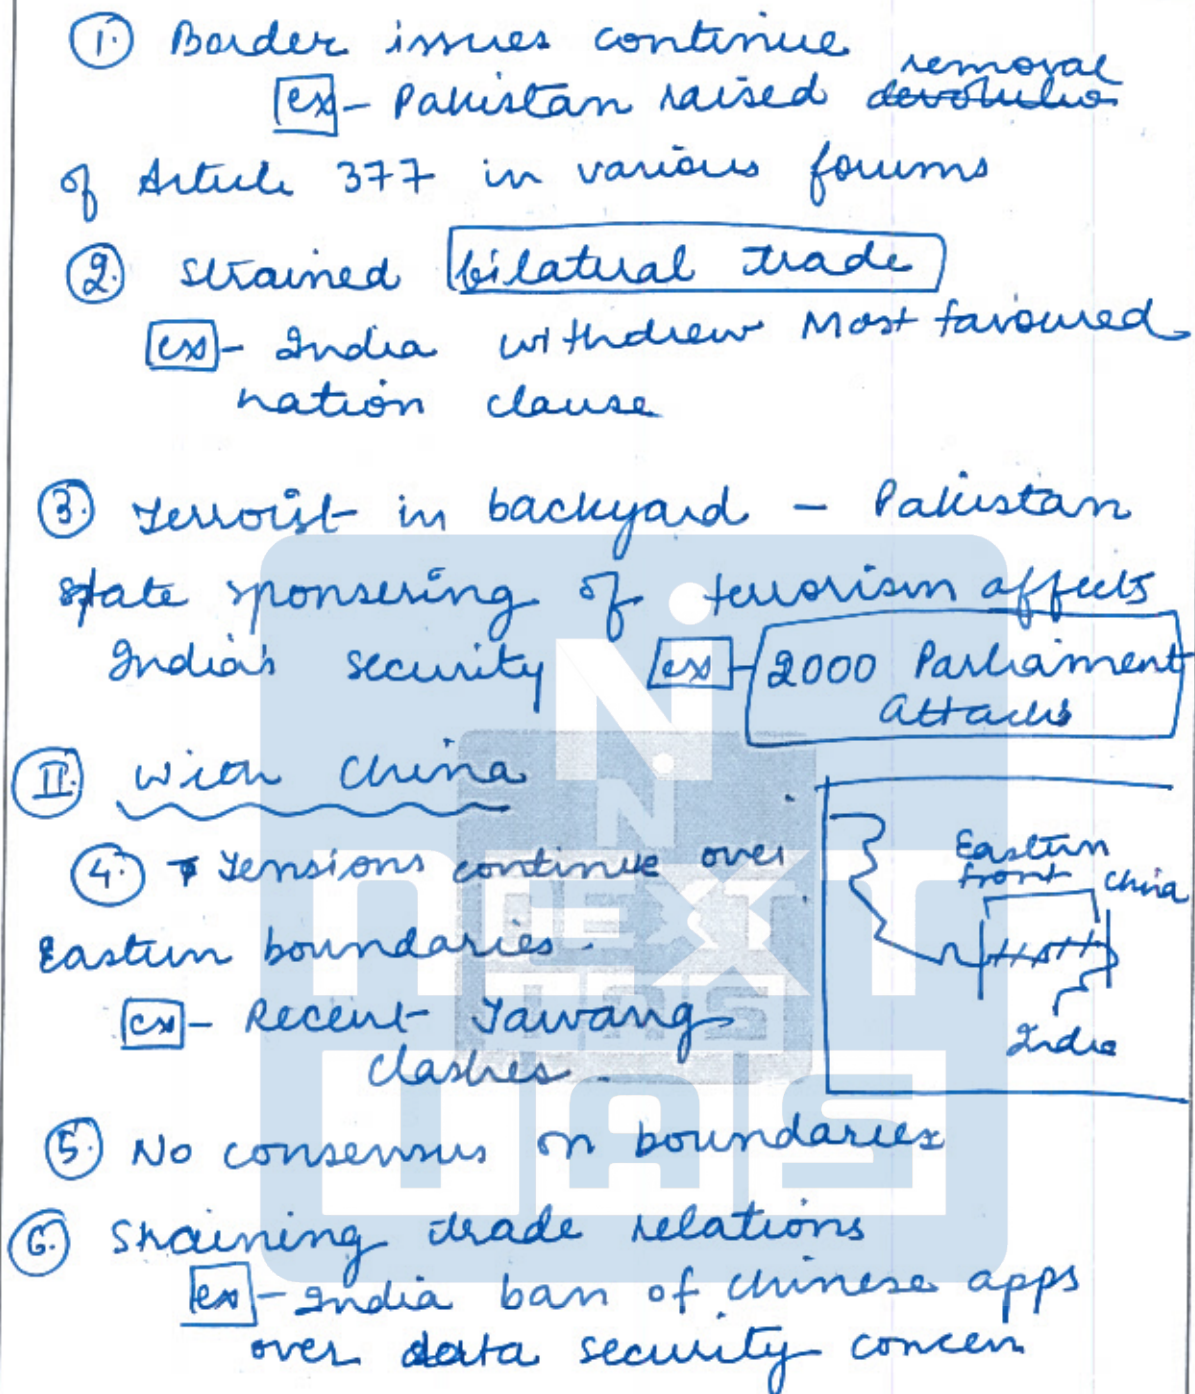 1. Border issues continue
removal
ex - Pakistan raised devolutio
of Article 377 in various forums
2. Strained bilateral trade
ex - India withdrew Most favoured
nation clause
3. Terroist in backyard - Pakistan
state sponsering of terrorism affects
India's security ex - 2000 Parliament
Attacks
II. With China
4. Tensions continue over
Eastern boundaries.
ex - Recent Tawang
clashes.
Eastern
front China
India
5. No consensus on boundaries
6. Straining trade relations
ex - India ban of chinese apps
over data security concern
N
NEXT
IAS
NEXT
IAS